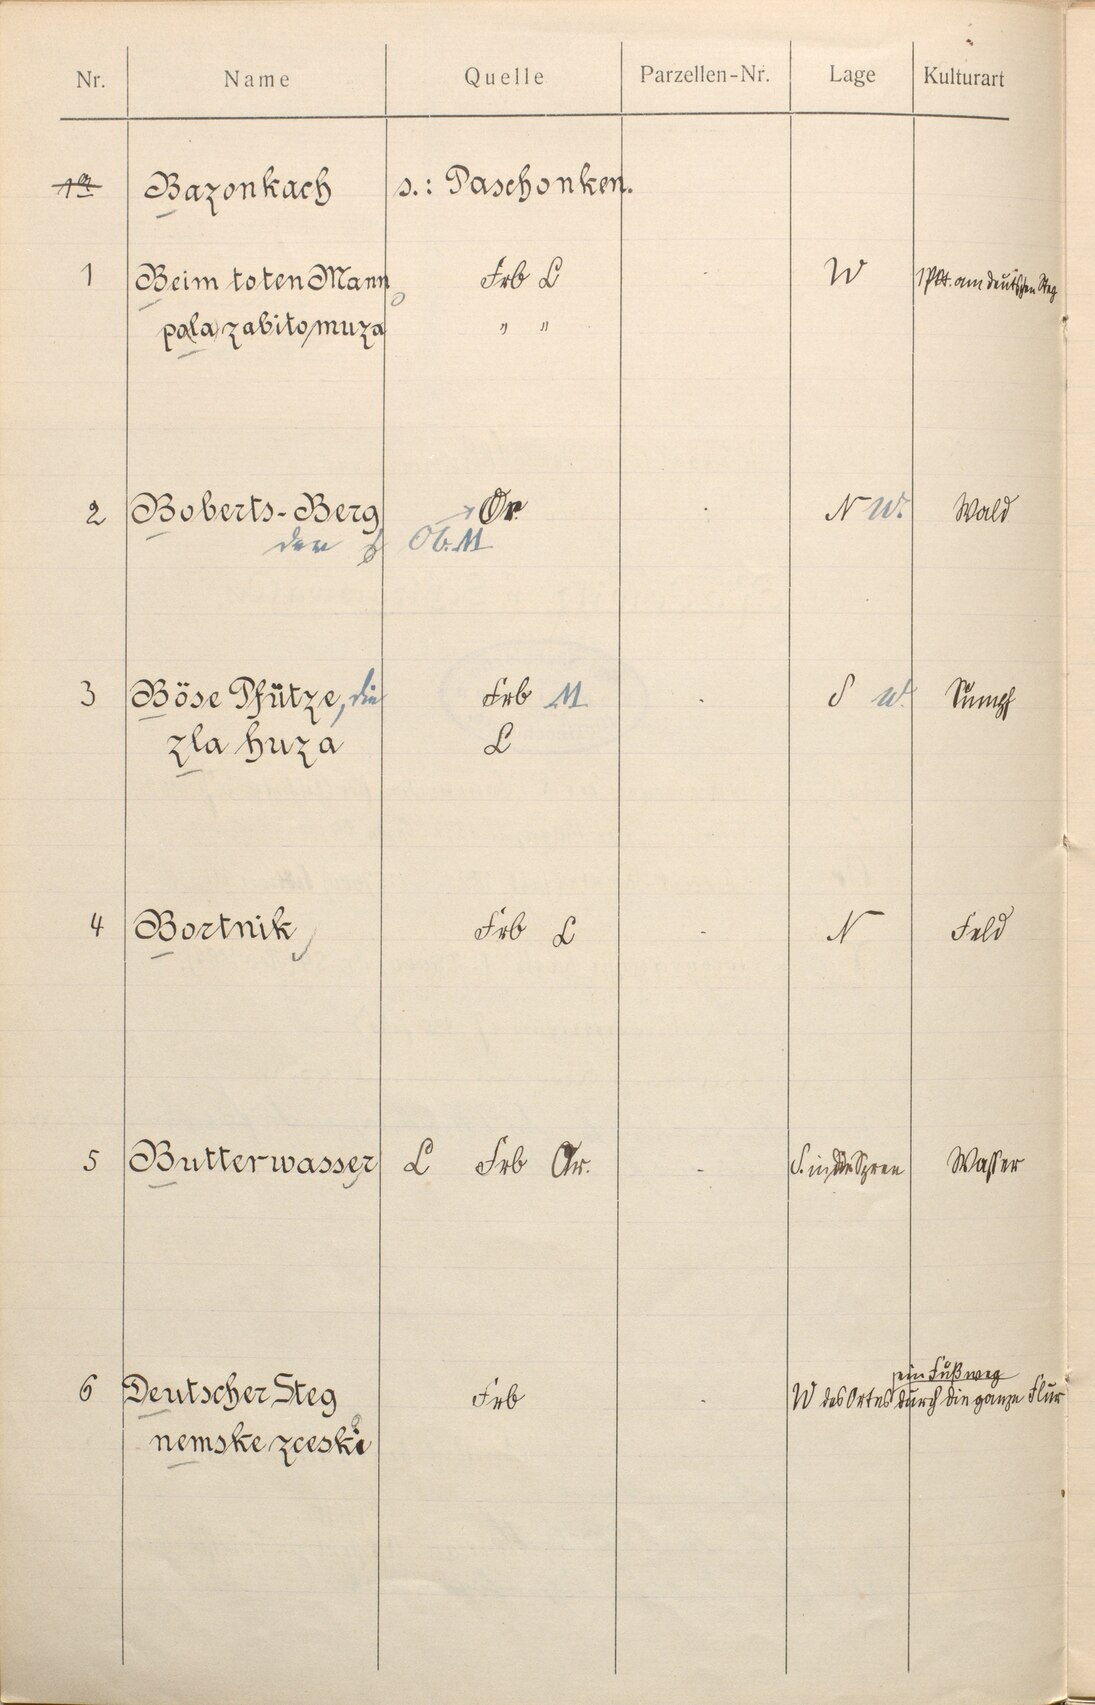 Nr. Name Quelle Parzellen-Nr. Lage Kulturart
1a Bazonkach s.: Paschonken.
1 Beim toten Mann Frb L - W 1 Pkt. am deutschen Steg
pola zabito muza " "
2 Boberts-Berg Or. - N W. Wald
der b Ob. M
3 Böse Pfütze, die Frb M - S W. Sumpf
zla huza L
4 Bortnik Frb L - N Feld
5 Butterwasser L Frb Or. - S. in der Spree Wasser
ein Fußweg
6 Deutscher Steg Frb - W des Ortes durch die ganze Flur
nemske zceski